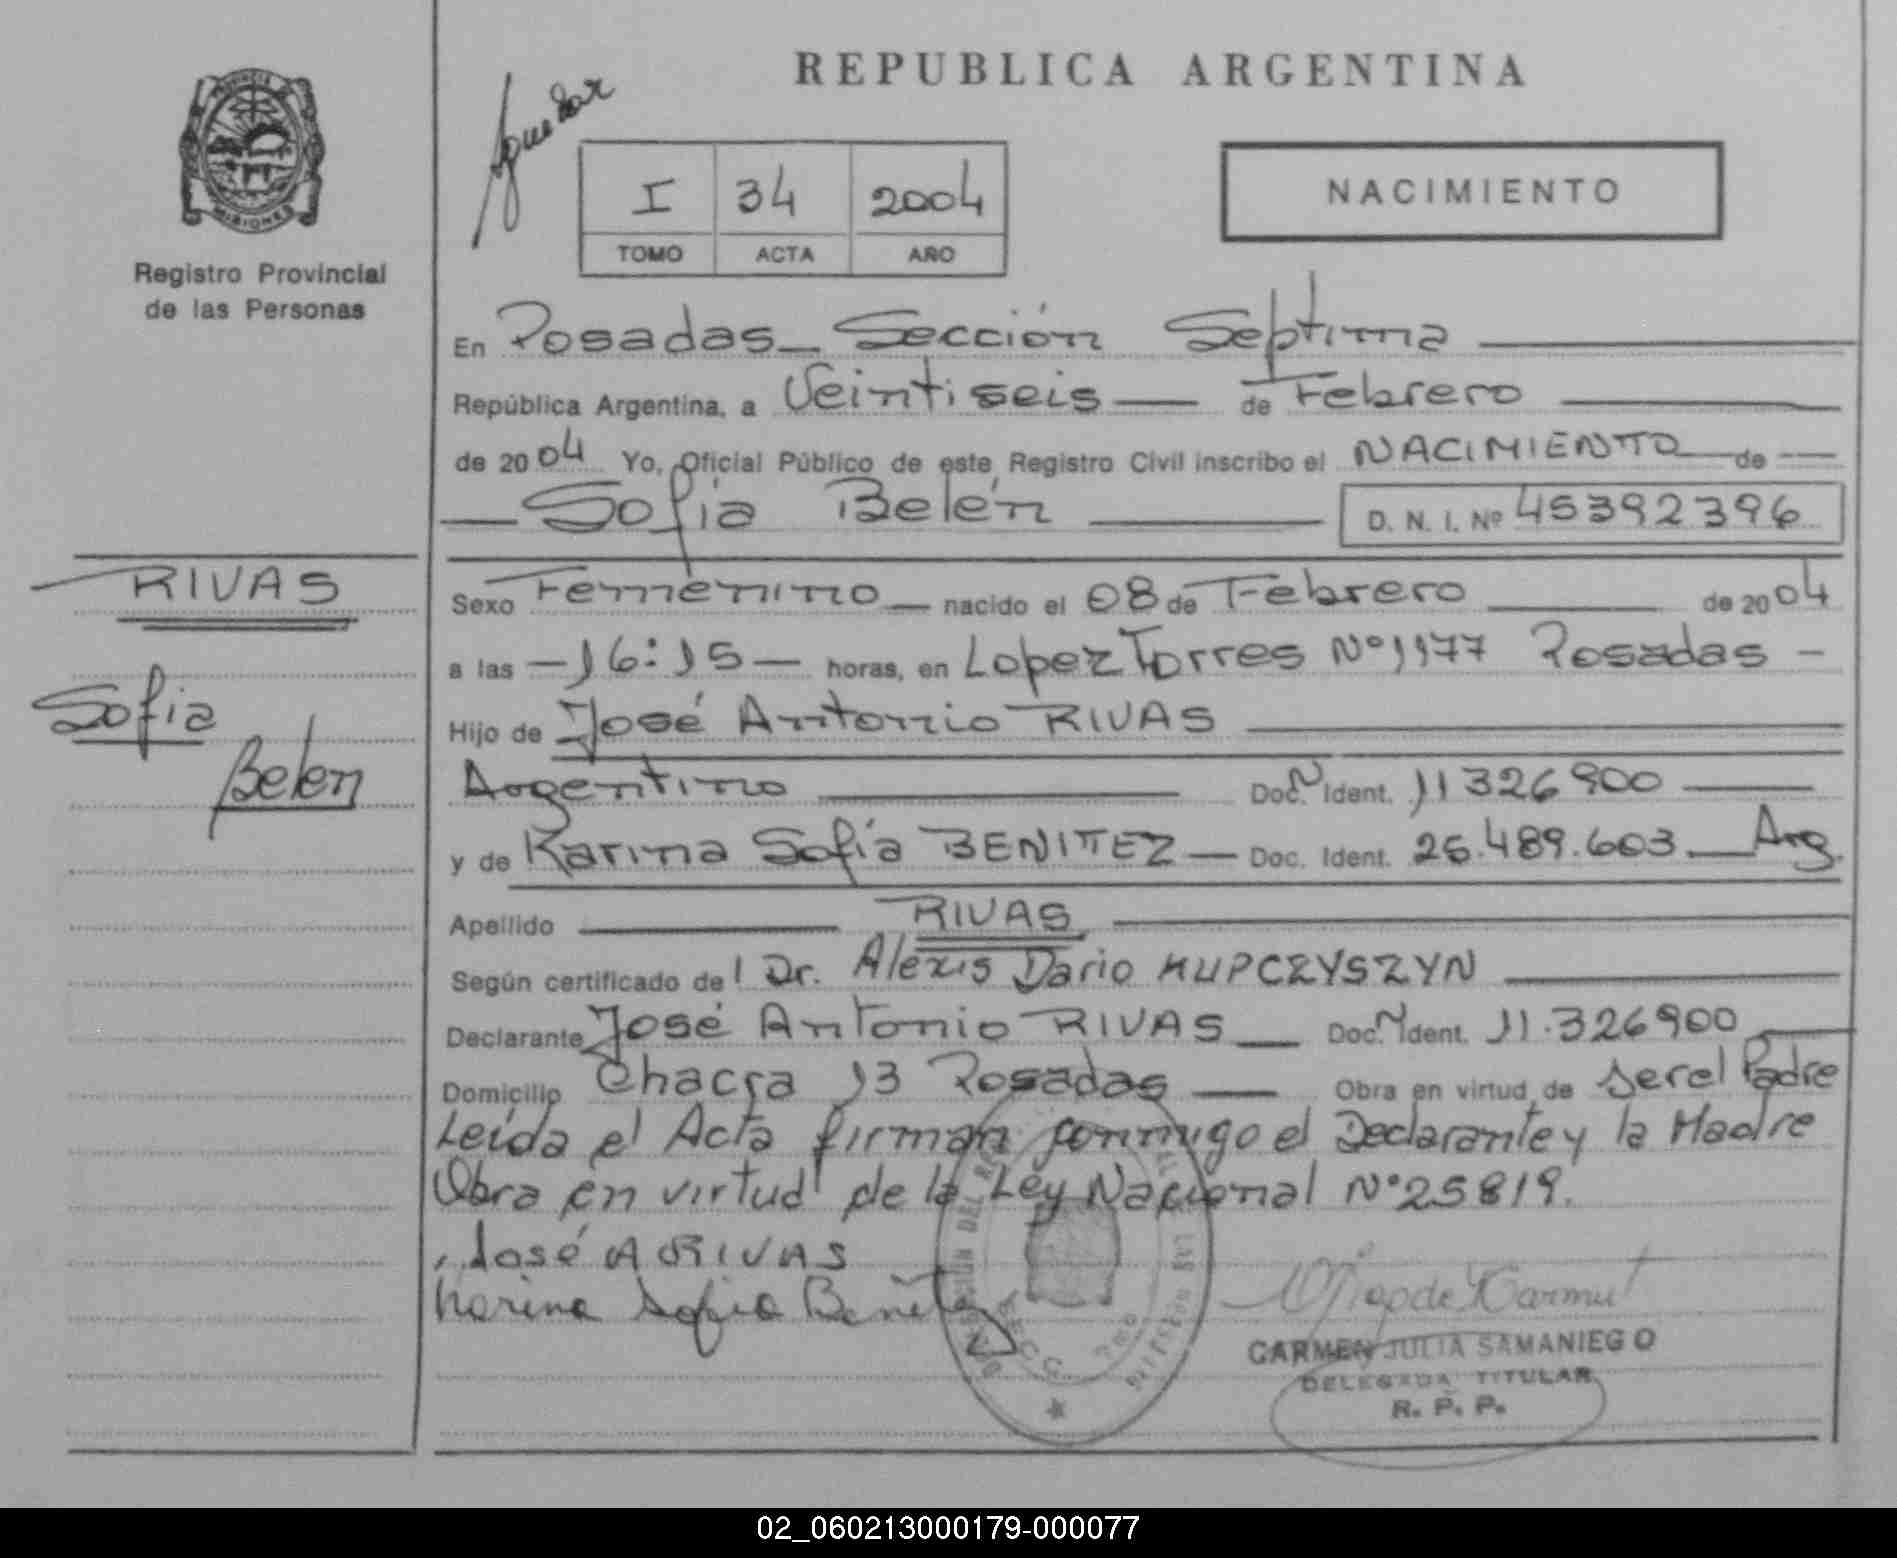 REPUBLICA ARGENTINA
PROVINCIA
MISIONES
Registro Provincial
de las Personas
I 34 2004
TOMO ACTA AÑO
NACIMIENTO
En Posadas_ Sección Septima
República Argentina, a Veintiseis de Febrero
de 2004 Yo, Oficial Público de este Registro Civil inscribo el NACIMIENTO de
Sofia Belén D. N. I. Nº 45392396
RIVAS
Sofia
Belen
Sexo Femenino nacido el 08 de Febrero de 2004
a las 16:15 horas, en Lopez Torres Nº 1177 Posadas
Hijo de José Antonio RIVAS
Argentino Doc. N Ident. 11326900
y de Karina Sofía BENITEZ Doc. Ident. 25.489.603 Arg.
Apellido RIVAS
Según certificado de l Dr. Alexis Dario KUPCZYSZYN
Declarante José Antonio RIVAS Doc. N Ident. 11.326900
Domicilio Chacra 13 Posadas Obra en virtud de ser el Padre
Leída el Acta firman conmigo el Declarante y la Madre
Obra en virtud de la Ley Nacional Nº 25819.
José A RIVAS
Karina Sofia Benitez
CARMEN JULIA SAMANIEGO
DELEGADA TITULAR
R. P. P.
02_060213000179-000077